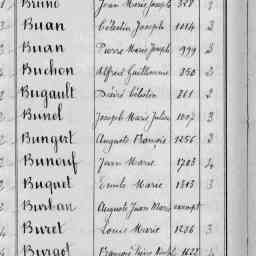 Brune Jean Marie Joseph 328 2
Buan Célestin Joseph 1014 2
Buan Pierre Marie Joseph 999 3
Buchon Alfred Guillaume 350 2
Bugault Désiré Célestin 261 2
Bunel Joseph Marie Julien 1007 3
Bungert Auguste François 1256 3
Bunouf Jean Marie 1703 4
Buquet Emile Marie 1313 3
Burban Auguste Jean Marie exempt
Buret Louis Marie 1236 3
Burgot François 1622 4